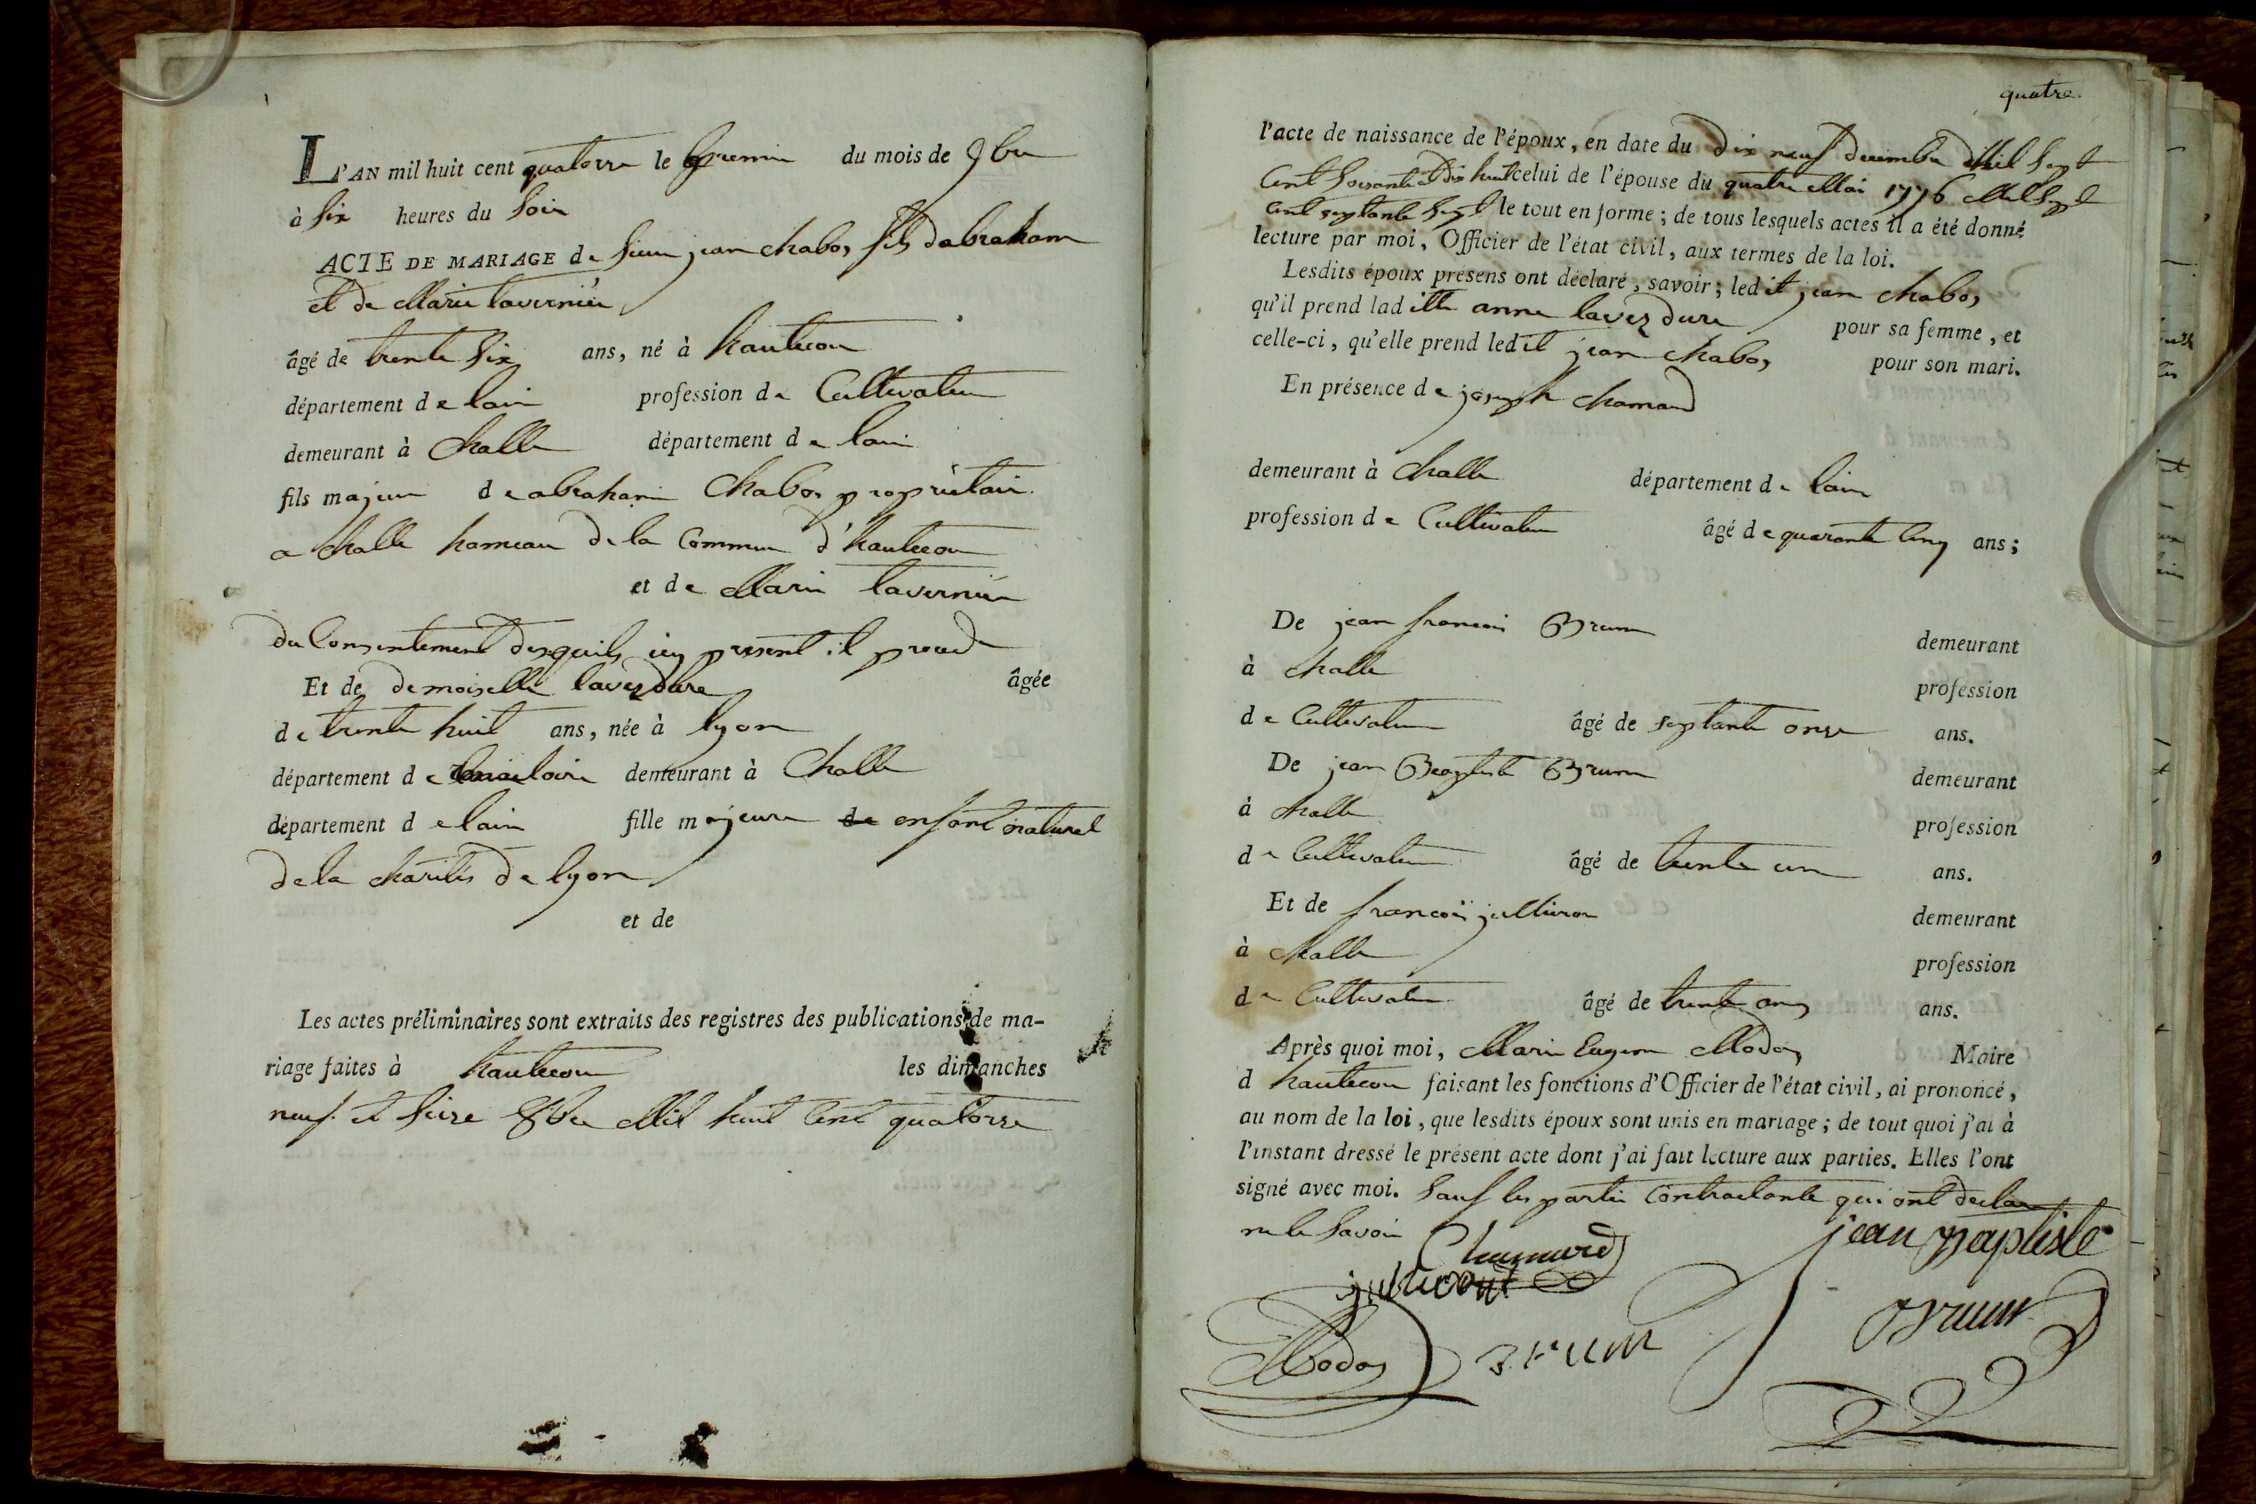 L'AN mil huit cent quatorze le premier du mois de 9bre
à Six heures du Soir
ACTE DE MARIAGE de Sieur jean chabos fils dabraham
et de Marie tavernier
âgé de trente Six ans, né à hautecour
département de lain profession de Cultivateur
demeurant à Challe département de lain
fils majeur de abraham Chabos propriétaire
a Challe hameau de la Commune d'hautecour
et de Marie tavernier
du Consentement desquels icy present il procede
Et de demoiselle laverdure âgée
de trente huit ans, née à lyon
département de demeurant à Challe
département de lain fille majeure de enfant naturel
de la charités de lyon
et de
Les actes préliminaires sont extraits des registres des publications de ma-
riage faites à hautecour les dimanches
neuf et Seize 8bre Mil huit Cent quatorze
quatre
l'acte de naissance de l'époux, en date du Dix neuf decembre Mil Sept
Cent Soixante et Dix huit celui de l'épouse du quatre Mai 1776 Mil Sept
Cent septante Sept le tout en forme ; de tous lesquels actes il a été donné
lecture par moi, Officier de l'état civil, aux termes de la loi.
Lesdits époux présens ont déclaré, savoir ; ledit jean chabos
qu'il prend laditte anne laverdure pour sa femme, et
celle-ci, qu'elle prend ledit jean chabos pour son mari.
En présence de joseph chamard
demeurant à Challe département de lain
profession de Cultivateur âgé de quarante Cinq ans ;
De jean francois Brun demeurant
à Challe profession
de Cultivateur âgé de septante onze ans.
De jean Baptiste Brun demeurant
à Challe profession
de Cultivateur âgé de trente un ans.
Et de francois jullieron demeurant
à Challe profession
de Cultivateur âgé de trente ans ans.
Après quoi moi, Marie Eugene Modas Maire
d hautecour faisant les fonctions d'Officier de l'état civil, ai prononcé,
au nom de la loi, que lesdits époux sont unis en mariage ; de tout quoi j'ai à
l'instant dressé le présent acte dont j'ai fait lecture aux parties. Elles l'ont
signé avec moi. Sauf les partie Contractante qui ont declare
ne le Savoir
Chamard jean Baptiste
Brun
Modas Brun